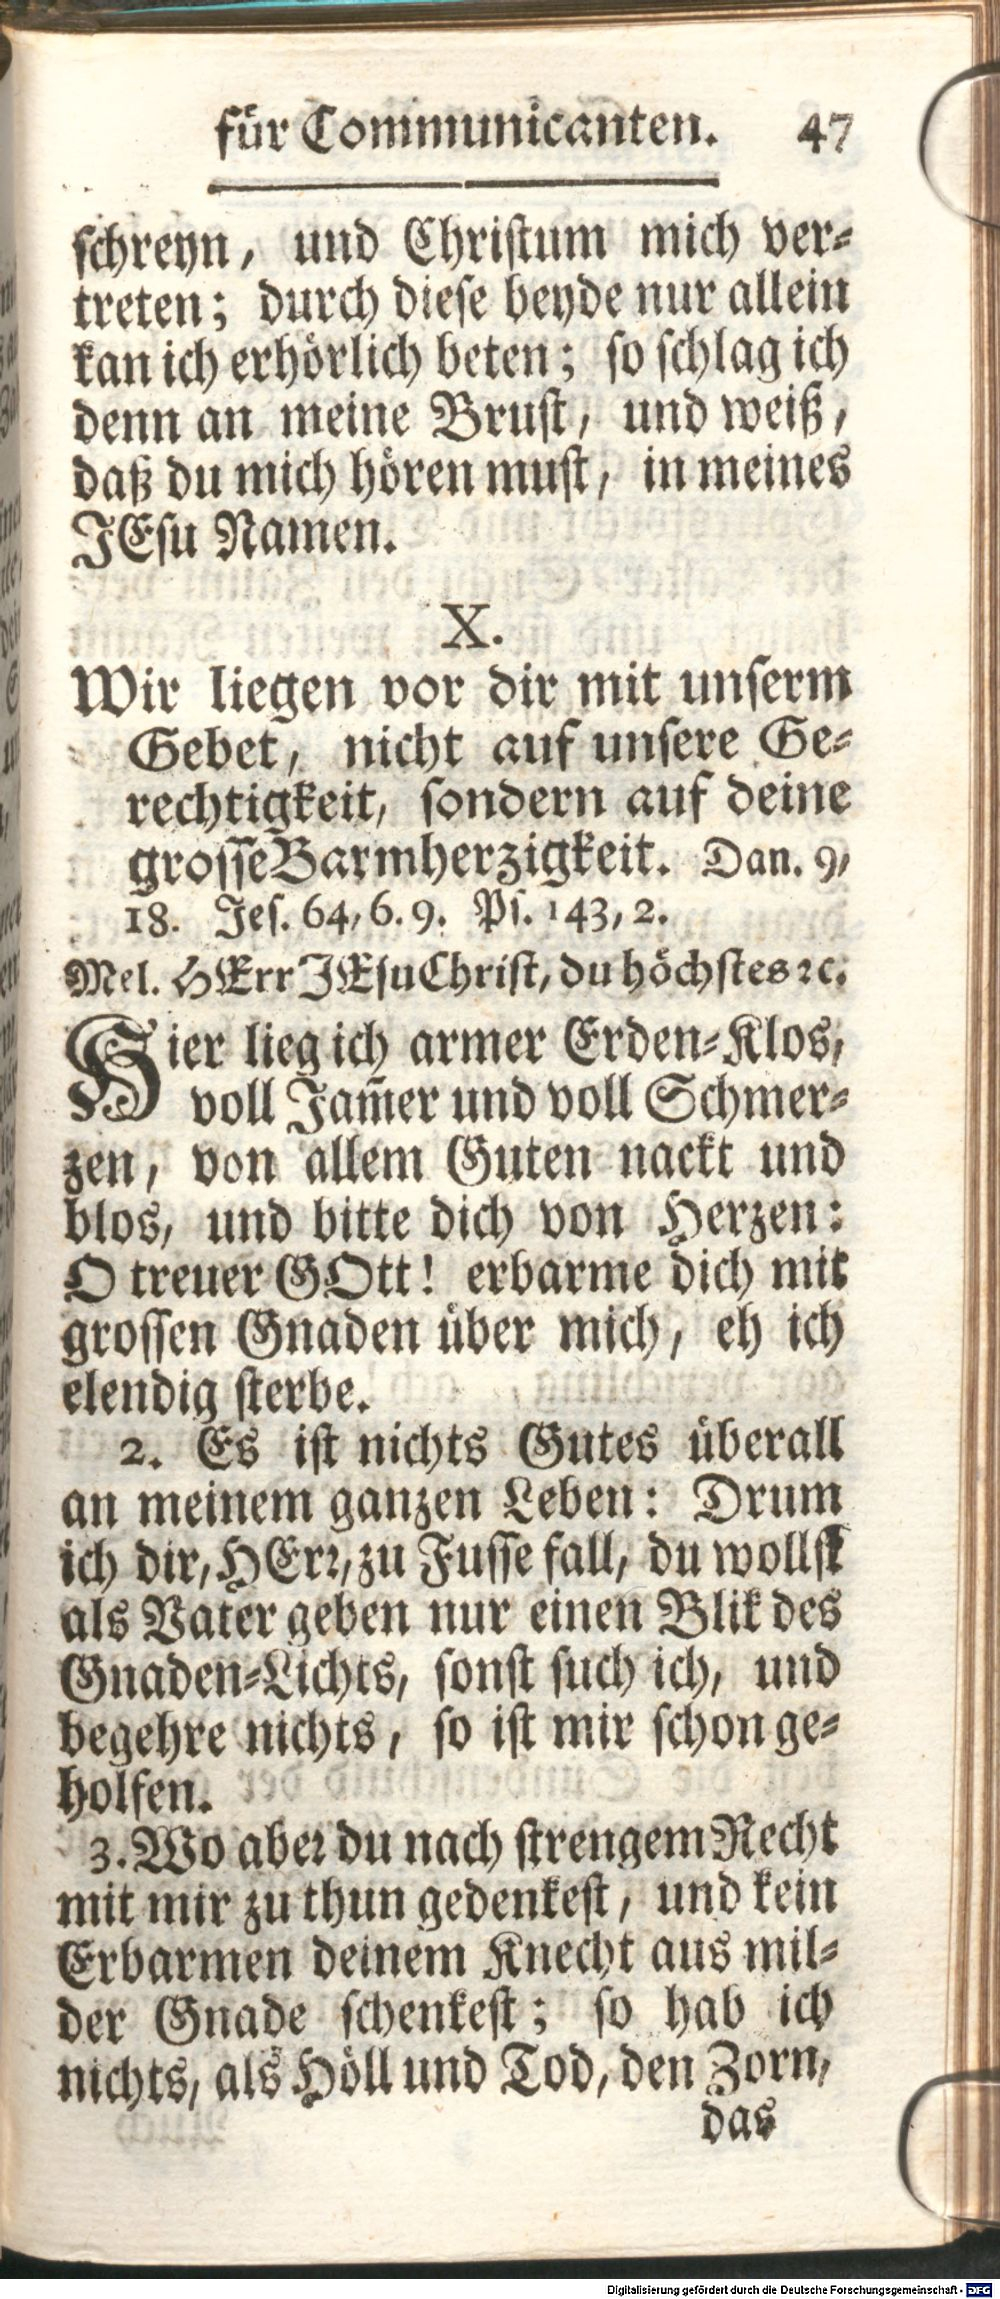 für Communicanten. 47
schreyn, und Christum mich ver-
treten; durch diese beyde nur allein
kan ich erhörlich beten; so schlag ich
denn an meine Brust, und weiß,
daß du mich hören must, in meines
JEsu Namen.
X.
Wir liegen vor dir mit unserm
Gebet, nicht auf unsere Ge-
rechtigkeit, sondern auf deine
grosse Barmherzigkeit. Dan. 9,
18. Jes. 64, 6. 9. Ps. 143, 2.
Mel. HErr JEsu Christ, du höchstes ꝛc.
Hier lieg ich armer Erden-Klos,
voll Jam̄er und voll Schmer-
zen, von allem Guten nackt und
blos, und bitte dich von Herzen:
O treuer GOtt! erbarme dich mit
grossen Gnaden über mich, eh ich
elendig sterbe.
2. Es ist nichts Gutes überall
an meinem ganzen Leben: Drum
ich dir, HErr, zu Fusse fall, du wollst
als Vater geben nur einen Blik des
Gnaden-Lichts, sonst such ich, und
begehre nichts, so ist mir schon ge-
holfen.
3. Wo aber du nach strengem Recht
mit mir zu thun gedenkest, und kein
Erbarmen deinem Knecht aus mil-
der Gnade schenkest; so hab ich
nichts, als Höll und Tod, den Zorn,
das
Digitalisierung gefördert durch die Deutsche Forschungsgemeinschaft - DFG